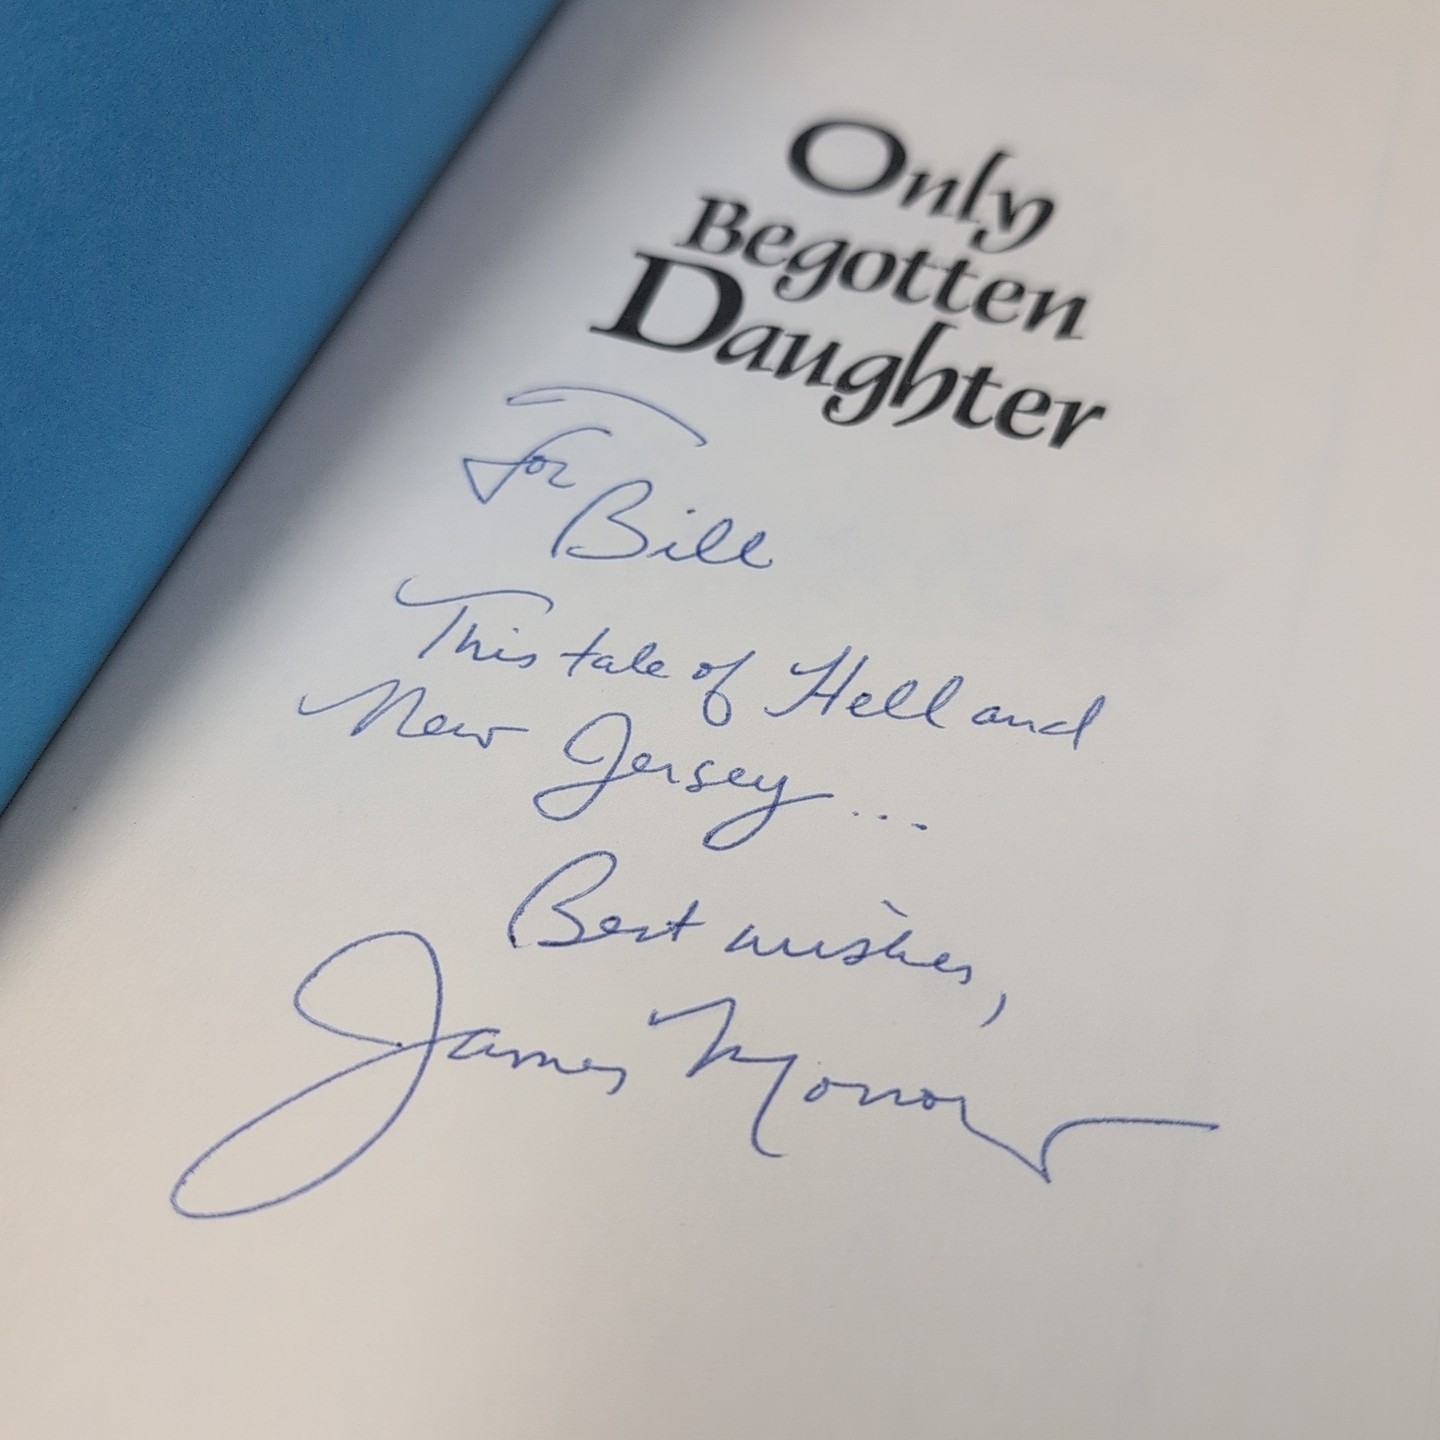 Only
Begotten
Daughter
For
Bill
This tale of Hell and
New Jersey...
Best wishes,
James Morrow